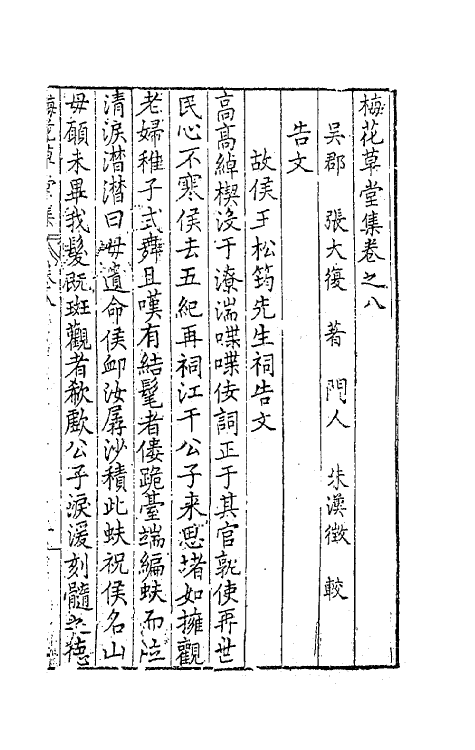 梅花草堂集卷之八
吳郡 張大復 著 門人 朱漢徵 較
告文
故侯王松筠先生祠告文
高高綽楔没于潦湍喋喋佞詞正于其官孰使再世
民心不寒侯去五紀再祠江干公子来思堵如擁觀
老婦稚子式舞且嘆有結髦者僂跪臺端編蚨而泣
清淚潸潸曰毋遺命侯卹汝孱沙積此蚨祝侯名山
毋願未畢我髮既斑觀者欷歔公子淚湲刻髓之德
梅花草堂集 卷八 一